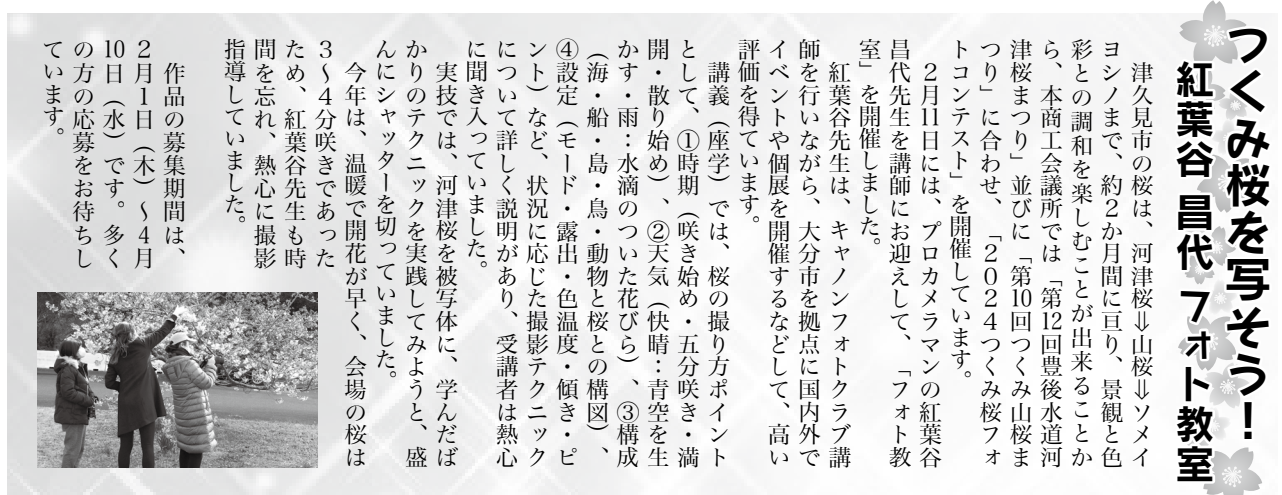 つくみ桜を写そう！
紅葉谷 昌代 フォト教室
津久見市の桜は、河津桜⇒山桜⇒ソメイ
ヨシノまで、約２か月間に亘り、景観と色
彩との調和を楽しむことが出来ることか
ら、本商工会議所では「第12回豊後水道河
津桜まつり」並びに「第10回つくみ山桜ま
つり」に合わせ、「２０２４つくみ桜フォ
トコンテスト」を開催しています。
２月11日には、プロカメラマンの紅葉谷
昌代先生を講師にお迎えして、「フォト教
室」を開催しました。
紅葉谷先生は、キャノンフォトクラブ講
師を行いながら、大分市を拠点に国内外で
イベントや個展を開催するなどして、高い
評価を得ています。
講義（座学）では、桜の撮り方ポイント
として、①時期（咲き始め・五分咲き・満
開・散り始め）、②天気（快晴：青空を生
かす・雨：水滴のついた花びら）、③構成
（海・船・島・鳥・動物と桜との構図）、
④設定（モード・露出・色温度・傾き・ピ
ント）など、状況に応じた撮影テクニック
について詳しく説明があり、受講者は熱心
に聞き入っていました。
実技では、河津桜を被写体に、学んだば
かりのテクニックを実践してみようと、盛
んにシャッターを切っていました。
今年は、温暖で開花が早く、会場の桜は
３～４分咲きであった
ため、紅葉谷先生も時
間を忘れ、熱心に撮影
指導していました。
作品の募集期間は、
２月１日（木）～４月
10日（水）です。多く
の方の応募をお待ちし
ています。